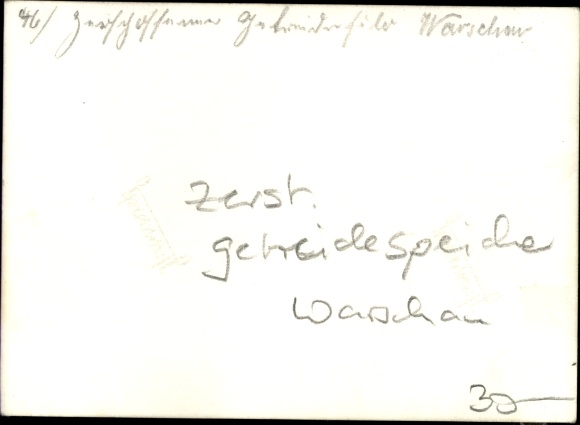 46/ Zerschossener Getreidesilo Warschau
Zerst.
getreidespeicher
Warschau
30-